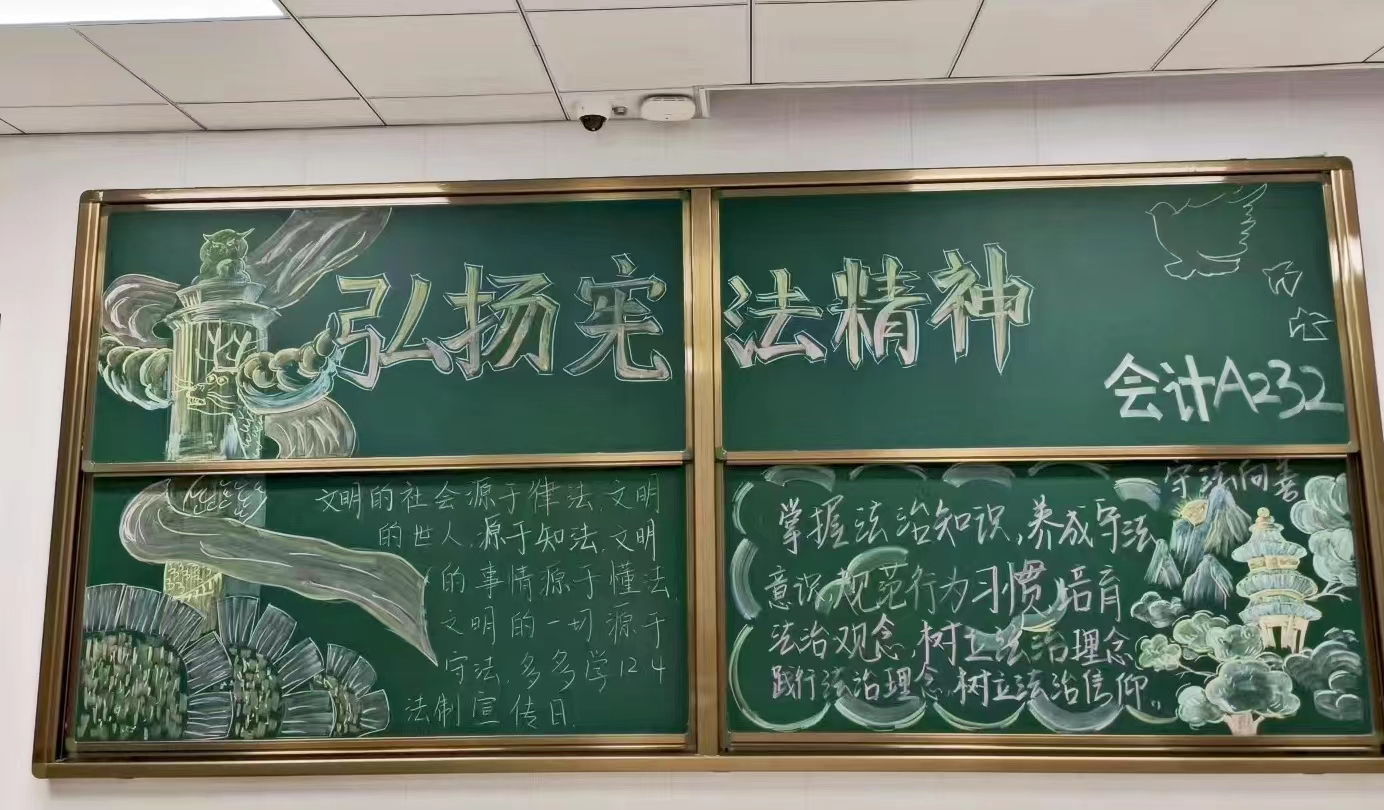 弘扬宪法精神
会计A232
文明的社会源于律法,文明
的世人,源于知法,文明
的事情源于懂法,
文明的一切源于
守法,多多学124
法制宣传日.
守法向善
掌握法治知识,养成守法
意识,规范行为习惯,培育
法治观念,树立法治理念
践行法治理念,树立法治信仰。